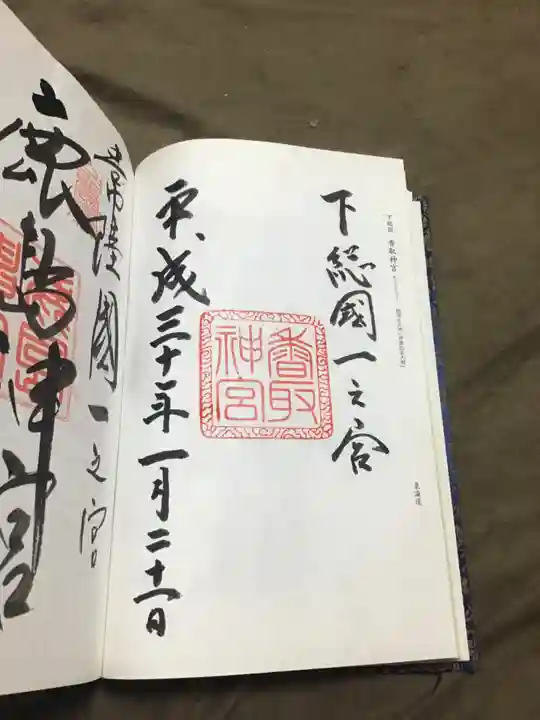 下総国 香取神宮
東海道
下総國一之宮
香取
神宮
平成三十年一月二十一日
常陸國一之宮
鹿島神宮